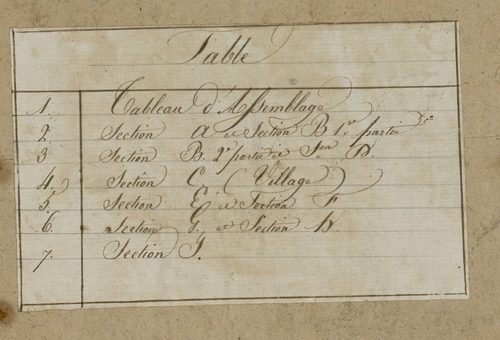 Table
1. Tableau d'Assemblage
2. Section A et Section B 1re partie
3 Section B. 2e partie et Son D.
4. Section C. (Village)
5. Section E. et Section F
6. Section G. et Section H.
7. Section I.